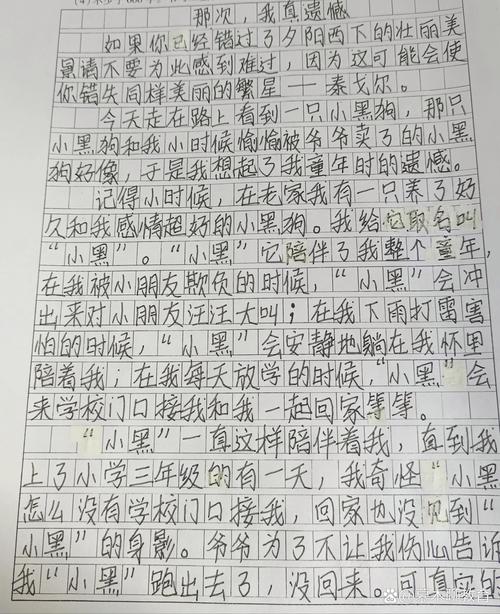 那次，我真遗憾
如果你已经错过了夕阳西下的壮丽美
景请不要为此感到难过，因为这可能会使
你错失同样美丽的繁星——泰戈尔。
今天走在路上看到一只小黑狗，那只
小黑狗和我小时候偷偷被爷爷卖了的小黑
狗好像，于是我想起了我童年时的遗憾。
记得小时候，在老家我有一只养了好
久和我感情超好的小黑狗。我给它取名叫
“小黑”。“小黑”它陪伴了我整个童年，
在我被小朋友欺负的时候，“小黑”会冲
出来对小朋友汪汪大叫；在我下雨打雷害
怕的时候，“小黑”会安静地躺在我怀里
陪着我；在我每天放学的时候，“小黑”会
来学校门口接我和我一起回家等等。
“小黑”一直这样陪伴着我，直到我
上了小学三年级的有一天，我奇怪“小黑
怎么没有学校门口接我，回家也没见到“
小黑”的身影。爷爷为了不让我伤心告诉
我“小黑”跑出去了，没回来。可真实的